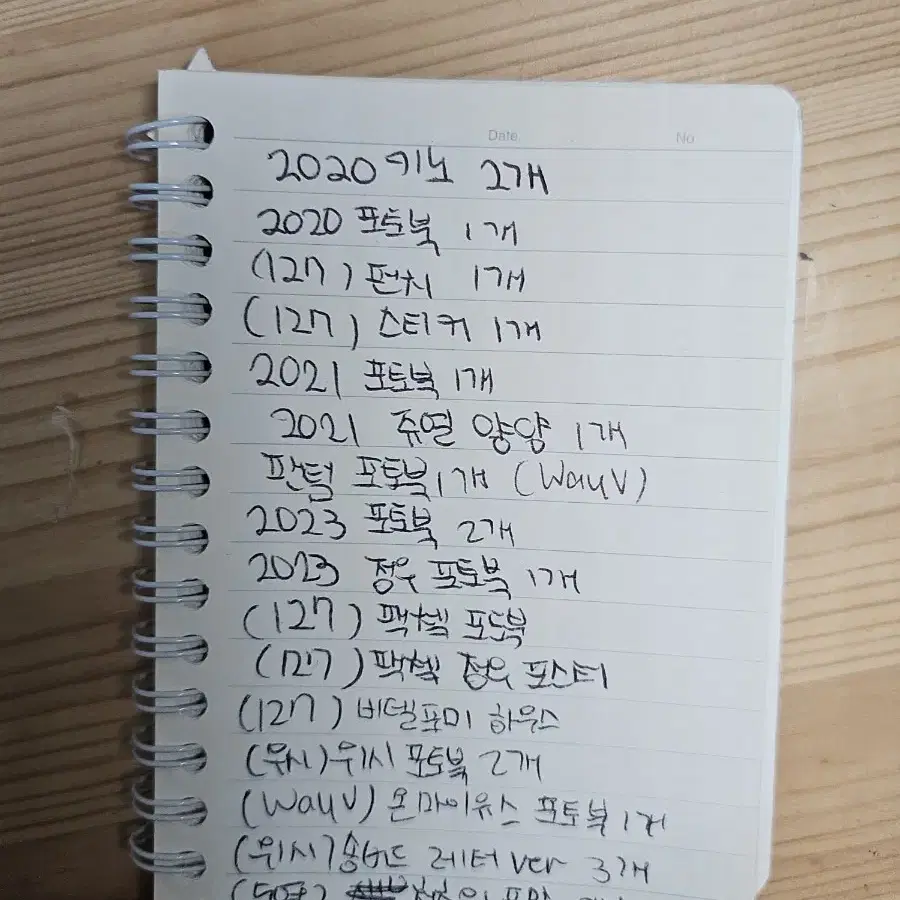 Date No
2020 키노 2개
2020 포토북 1개
(127) 펀치 1개
(127) 스티커 1개
2021 포토북 1개
2021 쥬열 양양 1개
판텀 포토북 1개 (WayV)
2023 포토북 2개
2023 정우 포토북 1개
(127) 팩첵 포토북
(127) 팩첵 정우 포스터
(127) 비델포미 하우스
(위시) 위시 포토북 2개
(WayV) 온마이유스 포토북 1개
(위시) 송버드 레터 ver 3개